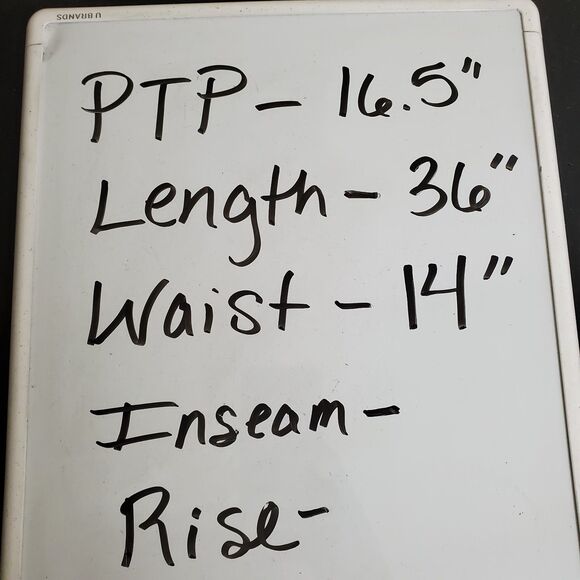 U BRANDS
PTP - 16.5"
Length - 36"
Waist - 14"
Inseam -
Rise -